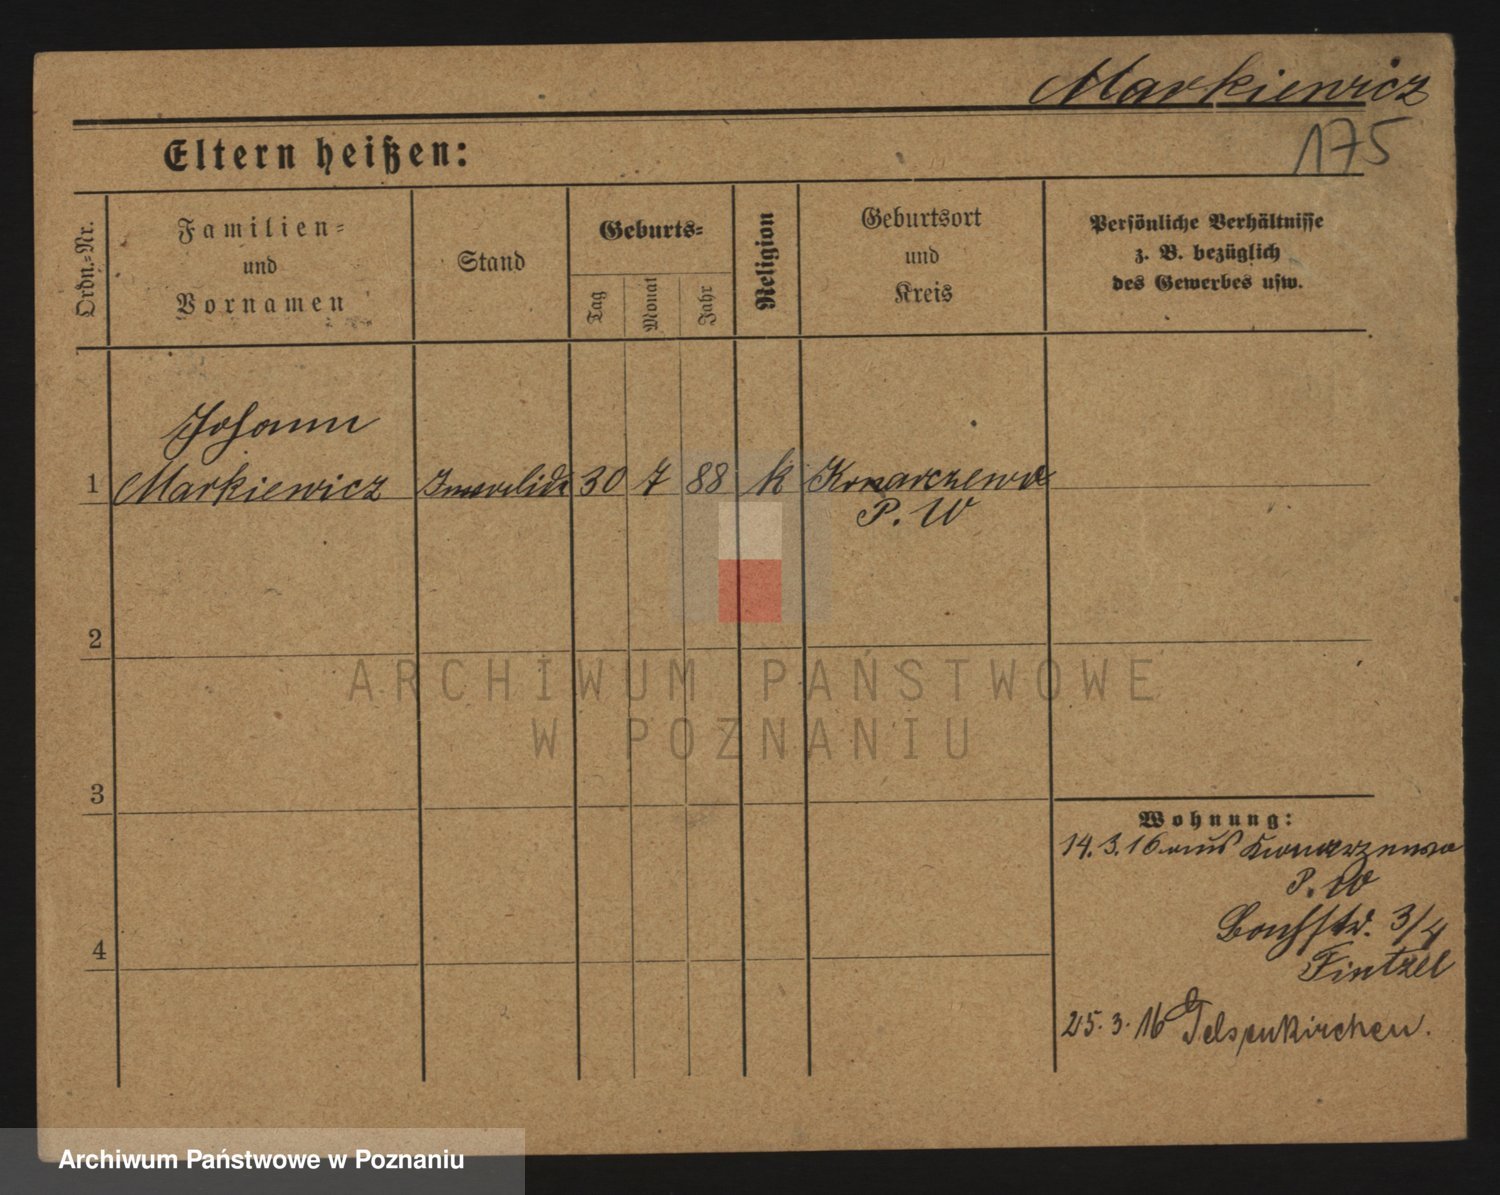 Markiewicz
175
Eltern heißen:
Ordn.=Nr.
Familien=
und
Vornamen
Stand
Geburts=
Tag
Monat
Jahr
Religion
Geburtsort
und
Kreis
Persönliche Verhältnisse
z. B. bezüglich
des Gewerbes usw.
Johann
1 Markiewicz Invalide 30 7 88 k Konarzewo
P. W
2
3
4
Wohnung:
14.3.16 aus Konarzewo
P. W
Bachstr. 3/4
Fintzel
25.3.16 Gelsenkirchen.
ARCHIWUM PAŃSTWOWE
W POZNANIU
Archiwum Państwowe w Poznaniu